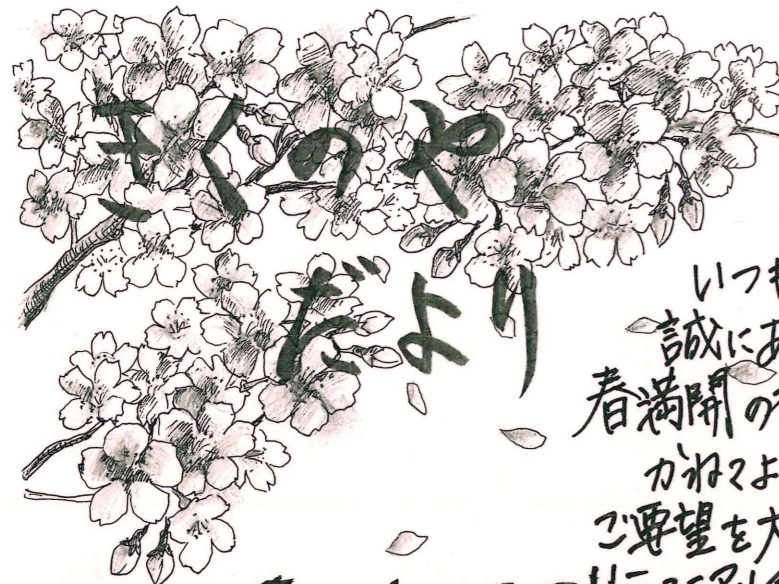 きくのや
だより
いつも
誠にあ
春満開の
かねてよ
ご要望を大